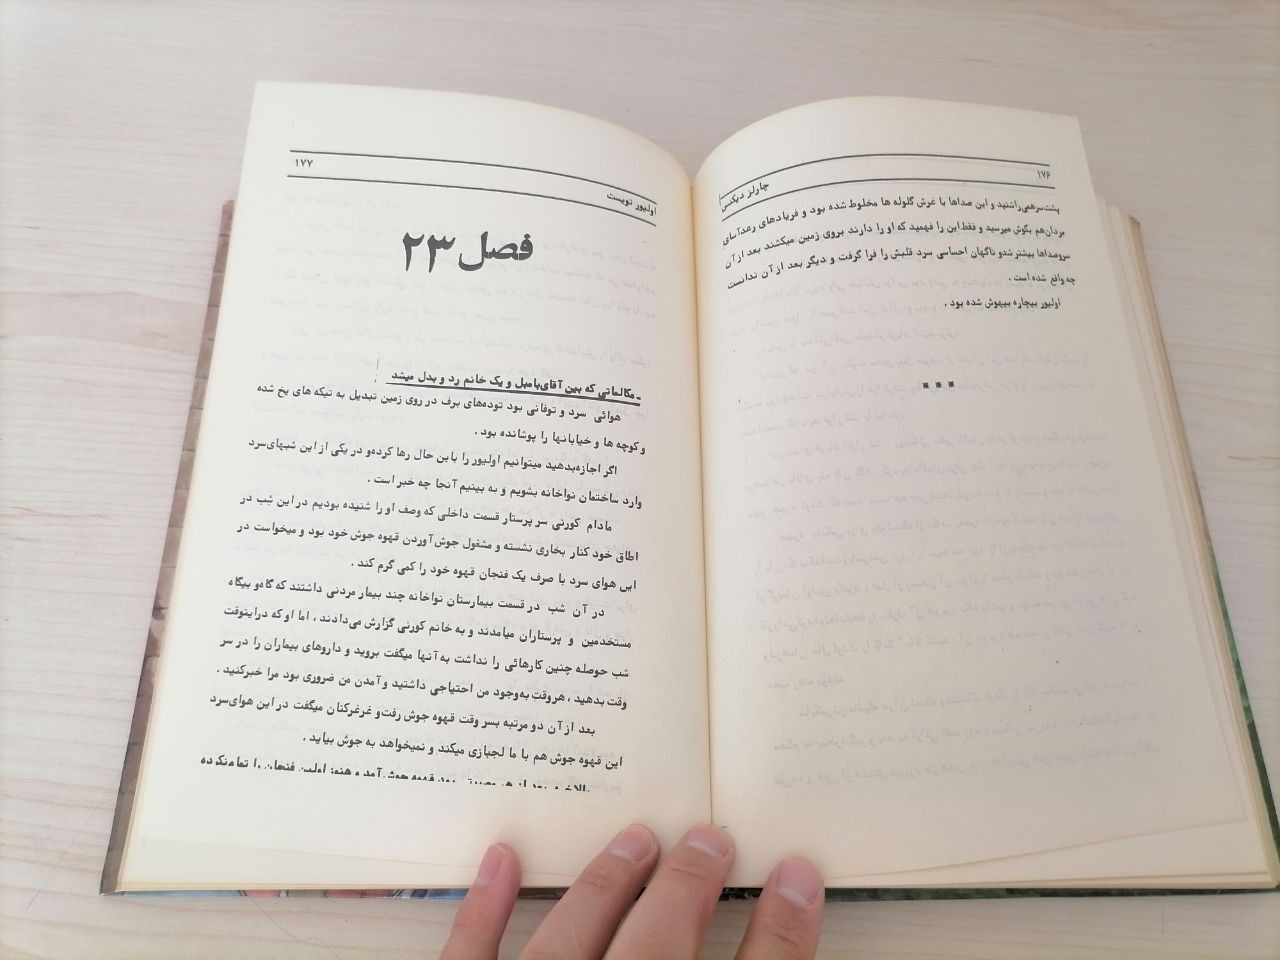 ۱۷۶
چارلز دیکنس
پشت‌سرهمی‌راشنید و این صداها با غرش گلوله ها مخلوط شده بود و فریادهای رعدآسای
مردان‌هم بگوش میرسید و فقط‌این را فهمید که او را دارند بروی زمین میکشند بعد ازآن
سروصداها بیشتر شدو ناگهان احساسی سرد قلبش را فرا گرفت و دیگر بعد از آن ندانست
چه واقع شده است .
اولیور بیچاره بیهوش شده بود .
* * *
۱۷۷
اولیور تویست
فصل ۲۳
ـ مکالماتی که بین آقای‌بامبل و یک خانم رد و بدل میشد
هوائی سرد و توفانی بود توده‌های برف در روی زمین تبدیل به تیکه های یخ شده
و کوچه ها و خیابانها را پوشانده بود .
اگر اجازه‌بدهید میتوانیم اولیور را با این حال رها کرده‌و در یکی از این شبهای‌سرد
وارد ساختمان نواخانه بشویم و به بینیم آنجا چه خبر است .
مادام کورنی سر پرستار قسمت داخلی که وصف او را شنیده بودیم در این شب در
اطاق خود کنار بخاری نشسته و مشغول جوش‌آوردن قهوه جوش خود بود و میخواست در
این هوای سرد با صرف یک فنجان قهوه خود را کمی گرم کند .
در آن شب در قسمت بیمارستان نواخانه چند بیمار مردنی داشتند که گاه‌و بیگاه
مستخدمین و پرستاران میامدند و به خانم کورنی گزارش می‌دادند ، اما او که دراینوقت
شب حوصله چنین کارهائی را نداشت به آنها میگفت بروید و داروهای بیماران را در سر
وقت بدهید ، هروقت به‌وجود من احتیاجی داشتید و آمدن من ضروری بود مرا خبرکنید .
بعد از آن دو مرتبه بسر وقت قهوه جوش رفت‌و غرغرکنان میگفت در این هوای‌سرد
این قهوه جوش هم با ما لجبازی میکند و نمیخواهد به جوش بیاید .
بالاخره بود از هر بود قهوه جوش آمد و هنوز اولین فنجان را تمام‌نکرده